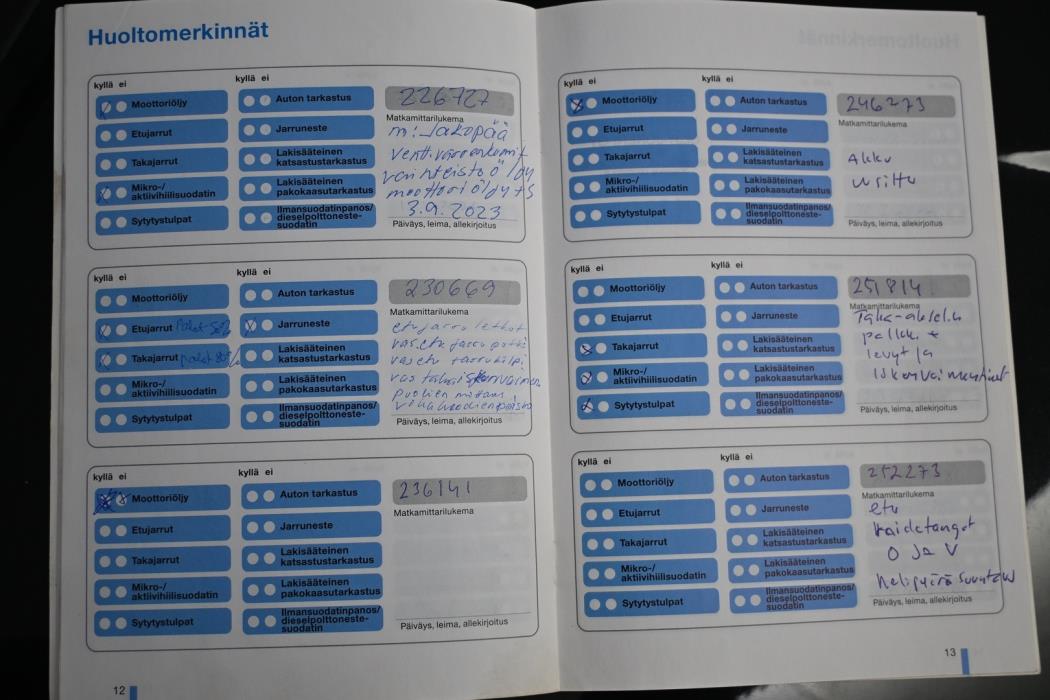 Huoltomerkinnät
kyllä ei
kyllä ei
Moottoriöljy
Auton tarkastus
226727
Matkamittarilukema
Etujarrut
Jarruneste
Takajarrut
Lakisääteinen
katsastustarkastus
Mikro-/
aktiivihiilisuodatin
Lakisääteinen
pakokaasutarkastus
Sytytystulpat
Ilmansuodatinpanos/
dieselpolttoneste-
suodatin
3.9.2023
Päiväys, leima, allekirjoitus
kyllä ei
kyllä ei
Moottoriöljy
Auton tarkastus
230669
Matkamittarilukema
Etujarrut
Jarruneste
etujarru letkut
Takajarrut
Lakisääteinen
katsastustarkastus
Mikro-/
aktiivihiilisuodatin
Lakisääteinen
pakokaasutarkastus
Sytytystulpat
Ilmansuodatinpanos/
dieselpolttoneste-
suodatin
Päiväys, leima, allekirjoitus
kyllä ei
kyllä ei
Moottoriöljy
Auton tarkastus
236141
Matkamittarilukema
Etujarrut
Jarruneste
Takajarrut
Lakisääteinen
katsastustarkastus
Mikro-/
aktiivihiilisuodatin
Lakisääteinen
pakokaasutarkastus
Sytytystulpat
Ilmansuodatinpanos/
dieselpolttoneste-
suodatin
Päiväys, leima, allekirjoitus
12
kyllä ei
kyllä ei
Moottoriöljy
Auton tarkastus
246273
Matkamittarilukema
Etujarrut
Jarruneste
Takajarrut
Lakisääteinen
katsastustarkastus
Akku
Mikro-/
aktiivihiilisuodatin
Lakisääteinen
pakokaasutarkastus
uusittu
Sytytystulpat
Ilmansuodatinpanos/
dieselpolttoneste-
suodatin
Päiväys, leima, allekirjoitus
kyllä ei
kyllä ei
Moottoriöljy
Auton tarkastus
251814
Matkamittarilukema
Etujarrut
Jarruneste
Taka-akselin
Takajarrut
Lakisääteinen
katsastustarkastus
levyt ja
Mikro-/
aktiivihiilisuodatin
Lakisääteinen
pakokaasutarkastus
iskunvaimentimet
Sytytystulpat
Ilmansuodatinpanos/
dieselpolttoneste-
suodatin
Päiväys, leima, allekirjoitus
kyllä ei
kyllä ei
Moottoriöljy
Auton tarkastus
252273
Matkamittarilukema
Etujarrut
Jarruneste
etu
raidetangot
Takajarrut
Lakisääteinen
katsastustarkastus
O ja V
Mikro-/
aktiivihiilisuodatin
Lakisääteinen
pakokaasutarkastus
Nelipyöräsuuntaus
Sytytystulpat
Ilmansuodatinpanos/
dieselpolttoneste-
suodatin
Päiväys, leima, allekirjoitus
13